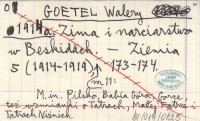 01 GOETEL Walery
1914a. Zima i narciarstwo
w Beskidach. — Ziemia
5 (1914-1919), 173-174.
m 11:
M. in. Pilsko, Babia Góra, Gorce
też wzmianki o Tatrach, Małej Fatrze i
Tatrach Niżnich.